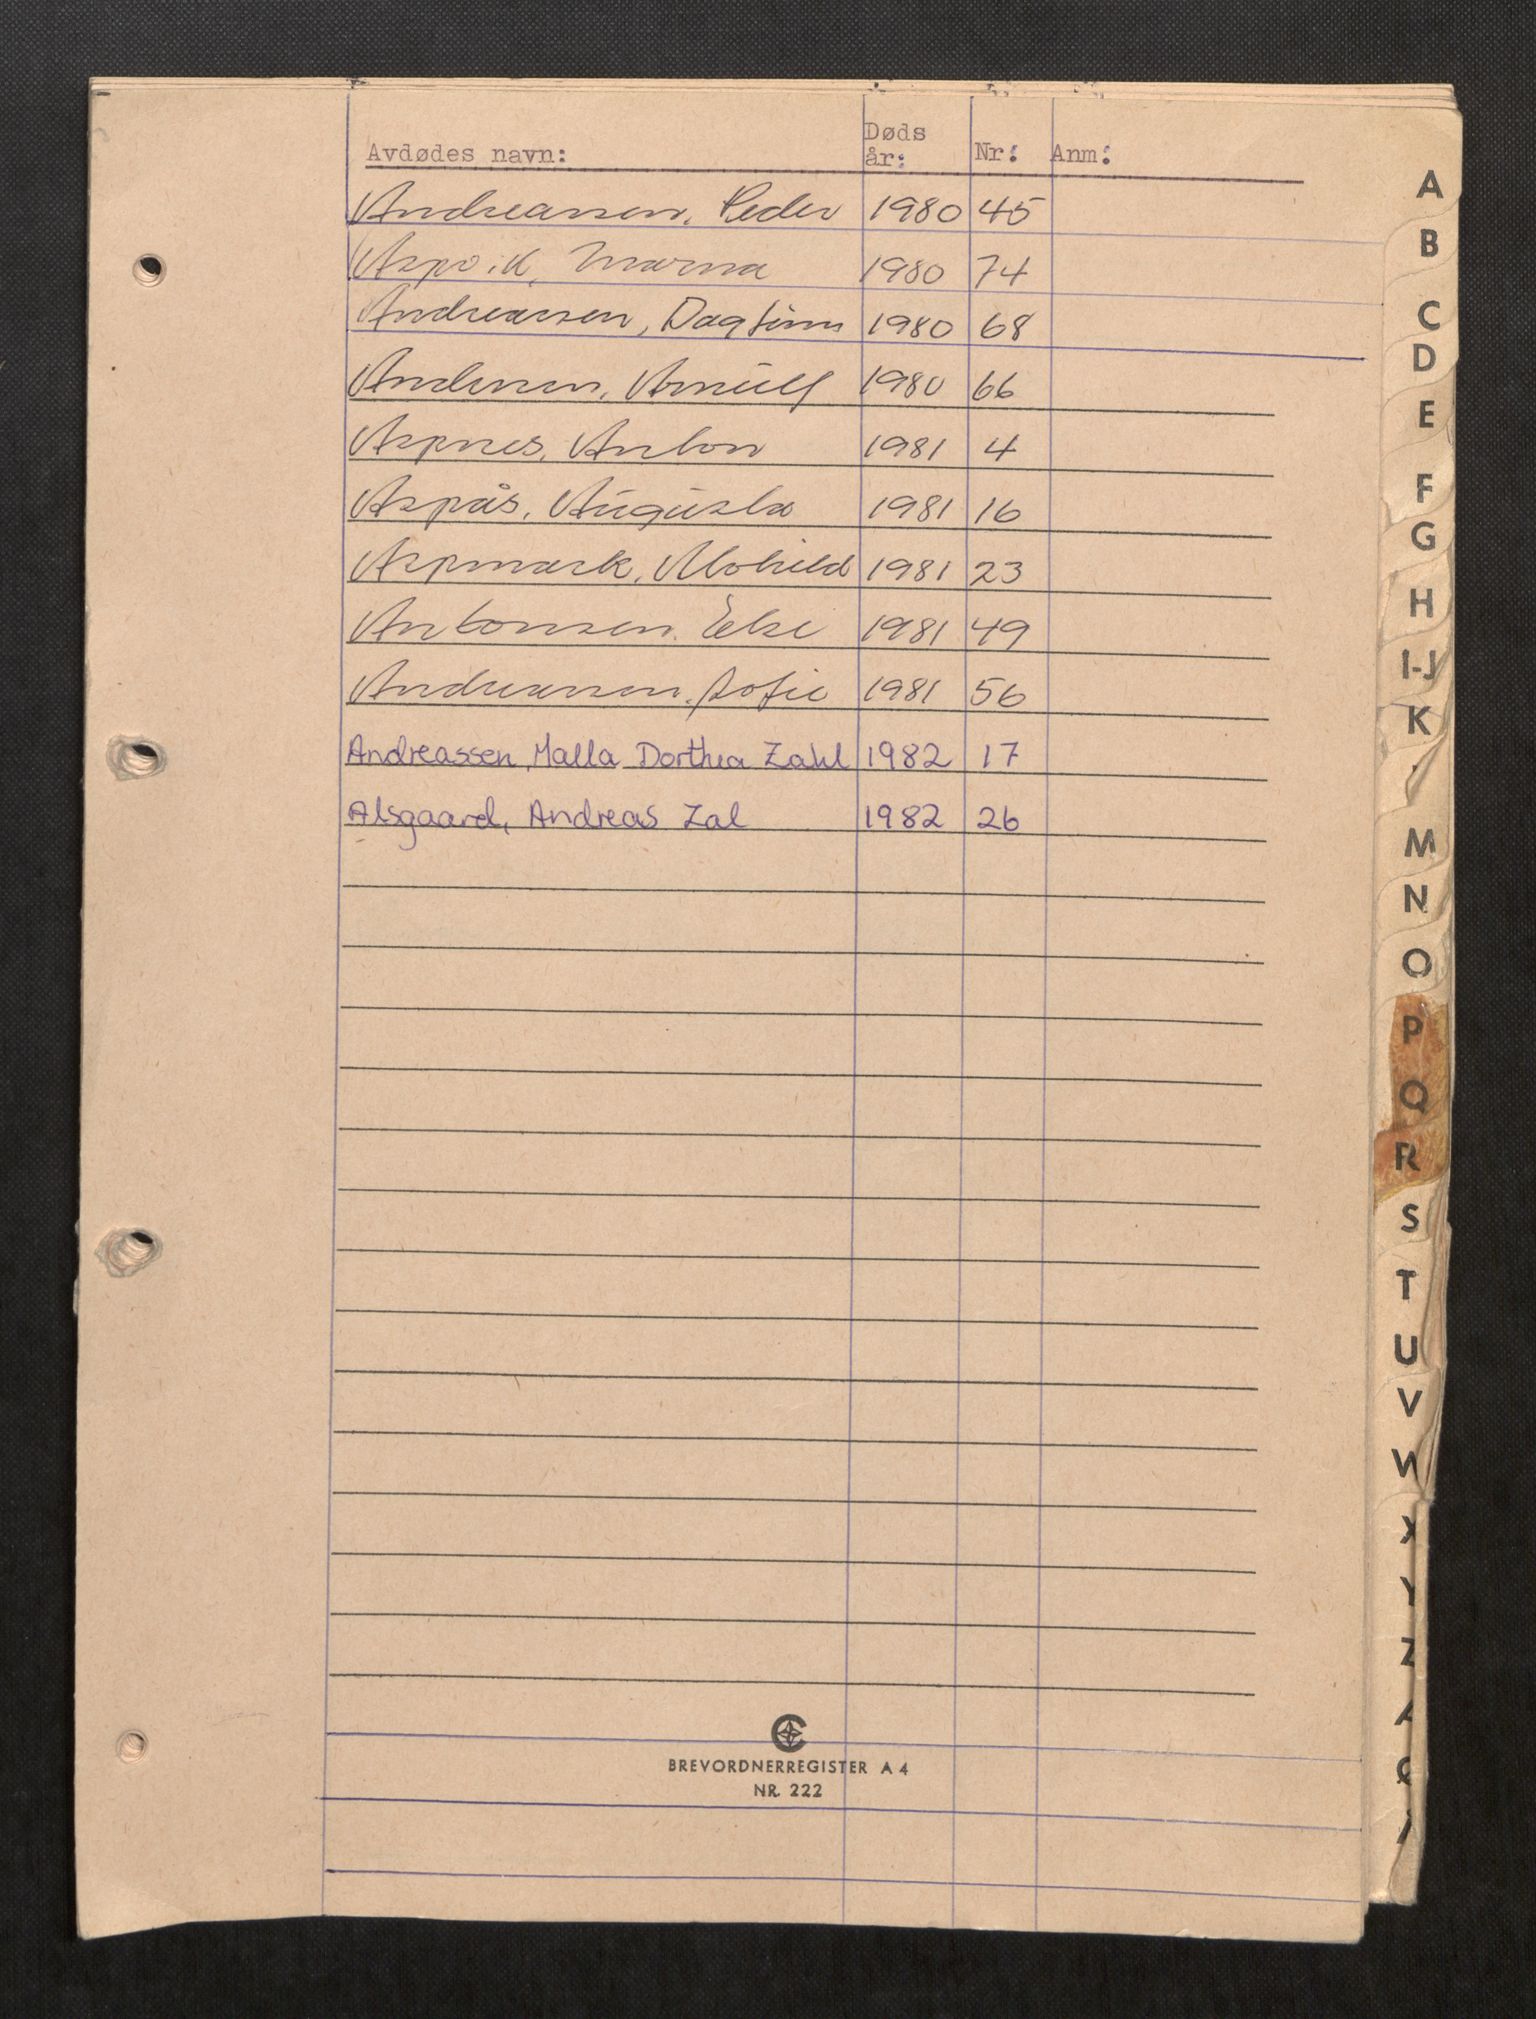 Avdødes navn: Døds år: Nr: Anm:
Andreassen, Peder 1980 45
Marna 1980 74
Andreassen, Dagfinn 1980 68
Andersen, Arnulf 1980 66
Aspnes, Anton 1981 4
Aspås, Augusta 1981 16
Aspmark, 1981 23
Antonsen, Else 1981 49
Andreassen, Sofie 1981 56
Andreassen, Malla Dorthea Zahl 1982 17
Alsgaard, Andreas Zal 1982 26
BREVORDNERREGISTER A 4
NR. 222
A
B
C
D
E
F
G
H
I-J
K
M
N
O
P
Q
R
S
T
U
V
W
X
Y
Z